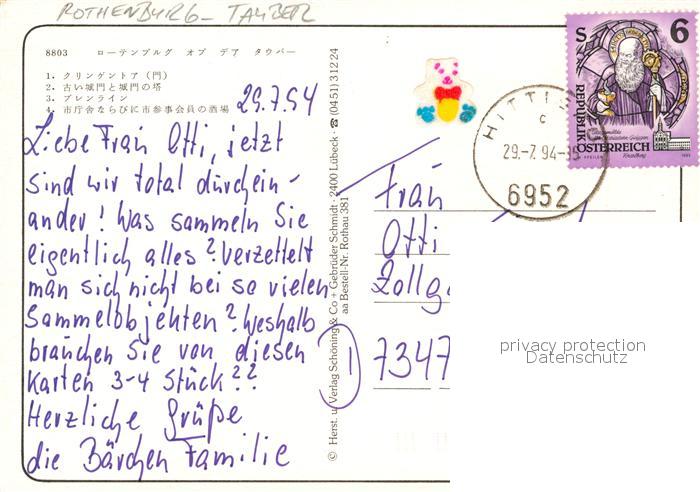 ROTHENBURG - TAUBER
8803 ローテンブルグ オブ デア タウバー
1. クリンゲントア (門)
2. 古い城門と城門の塔
3. プレンライン
4. 市庁舎ならびに市参事会員の酒場
29.7.94
Liebe Frau Otti, jetzt
sind wir total durchein-
ander! Was sammeln Sie
eigentlich alles? Verzettelt
man sich nicht bei so vielen
Sammelobjekten? Weshalb
brauchen Sie von diesen
Karten 3-4 Stück??
Herzliche Grüße
die Bärchen Familie
© Herst. u. Verlag Schöning & Co + Gebrüder Schmidt · 2400 Lübeck · ☎ (0451) 31224
aa Bestell-Nr. Rothau 381
S 6
REPUBLIK
ÖSTERREICH
1993
29.-7.94-
6952
Frau
Otti
Zollg
D 7347
privacy protection
Datenschutz